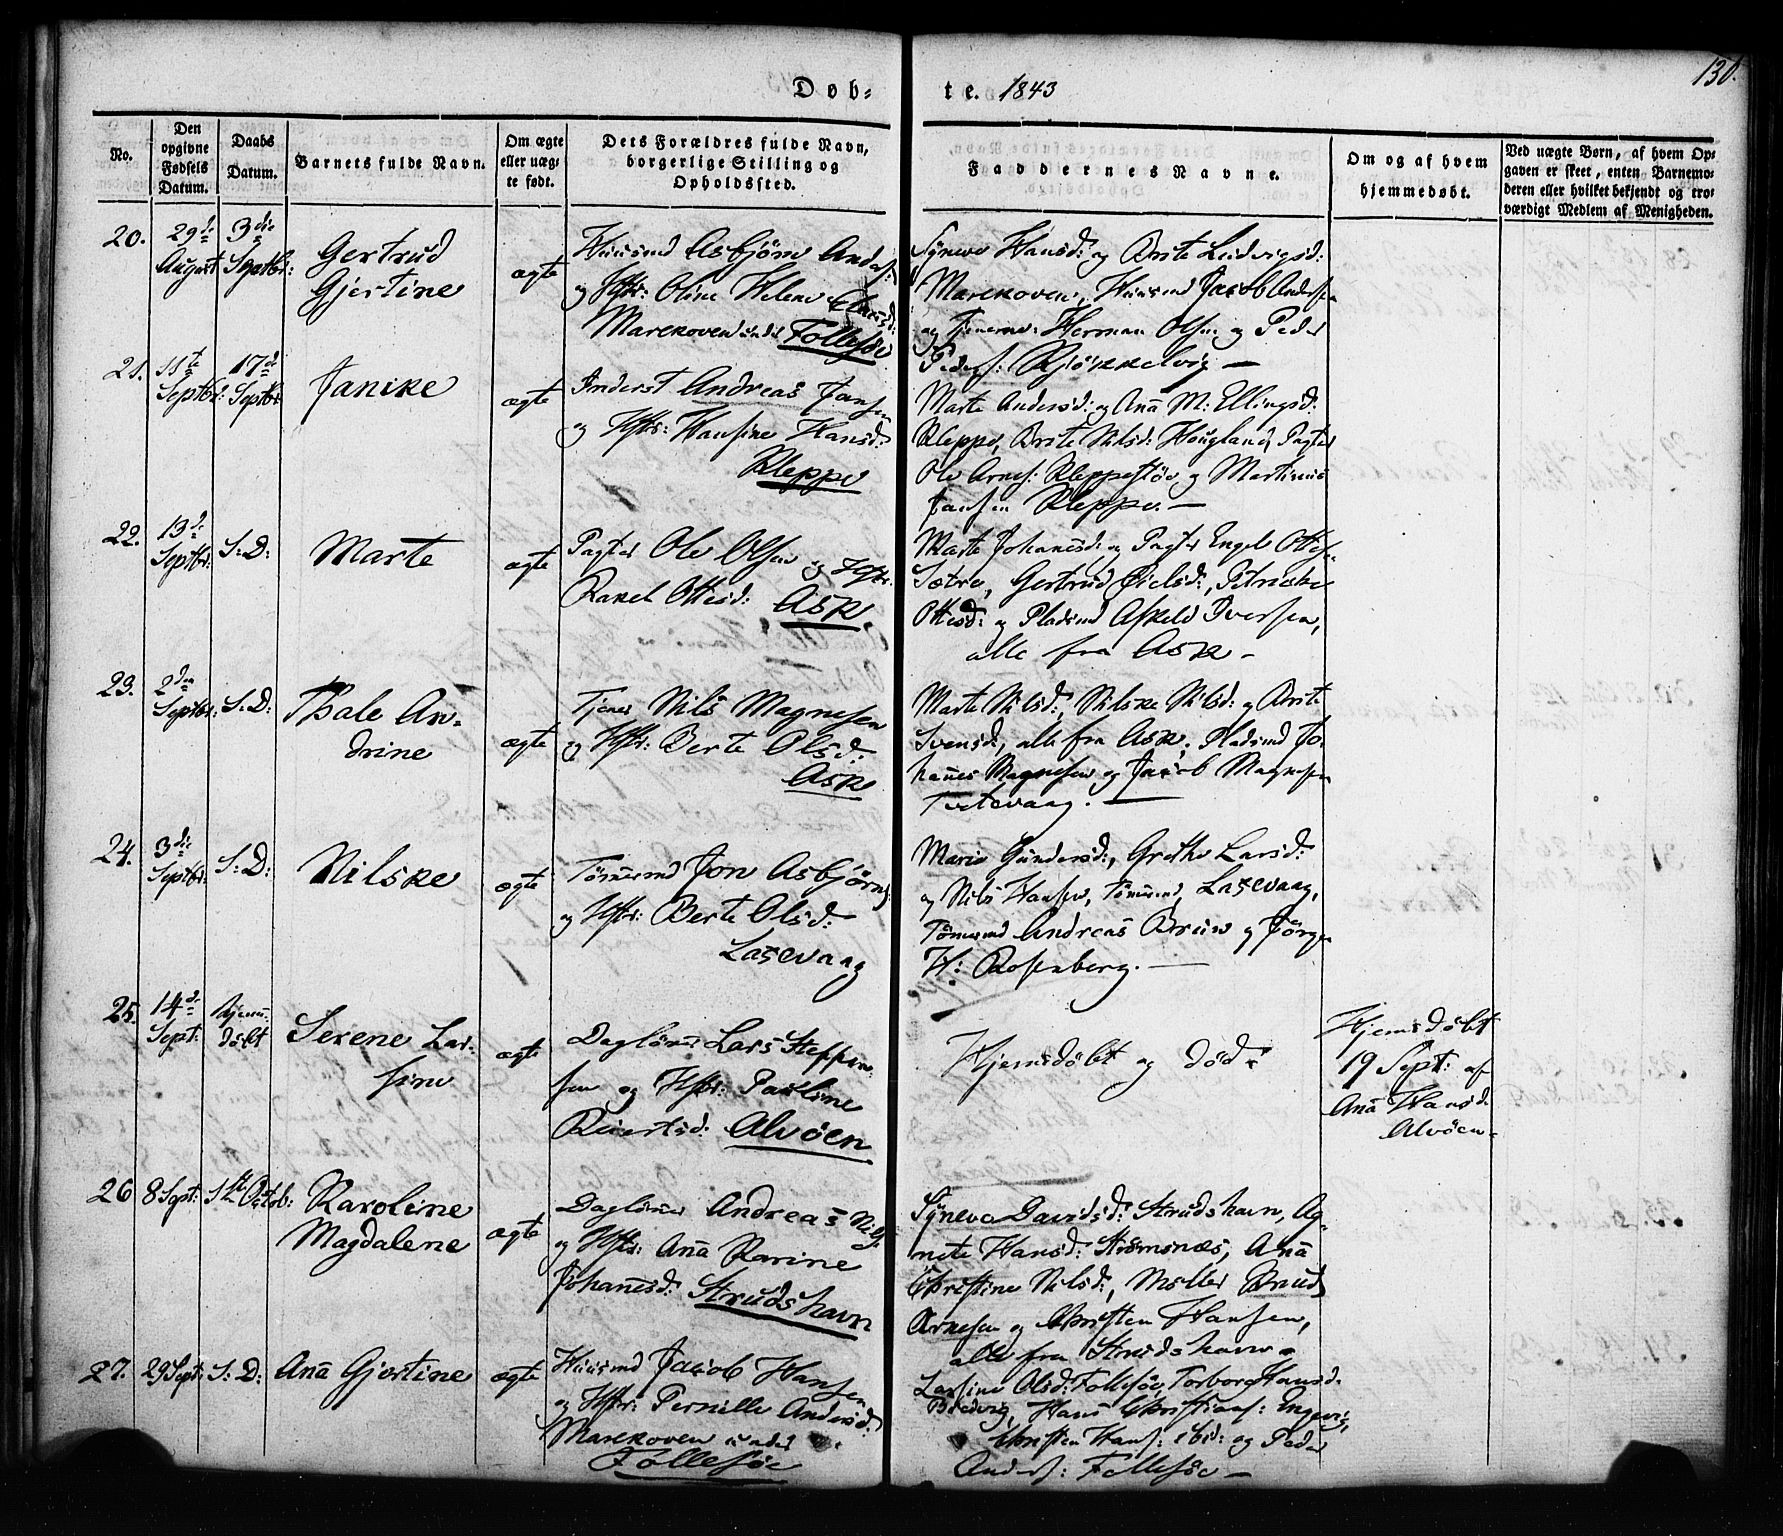 130.
Døb-
te. 1843
No.
Den opgivne Fødsels Datum.
Daabs Datum.
Barnets fulde Navn.
Om ægte eller uægte født.
Dets Forældres fulde Navn, borgerlige Stilling og Opholdssted.
Faddernes Navne.
Om og af hvem hjemmedøbt.
Ved uægte Børn, af hvem Opgaven er skeet, enten Barnemoderen eller hvilket bekjendt og troværdigt Medlem af Menigheden.
20.
29de August
3die Septbr:
Gertrud
Gjertine
ægte
Huusmd Asbjørn Anders:
og Hstr: Oline Helene
Marekoven under Follesøe
Syneve Hansd: og Brite Ludvigsd:
Marekoven, Huusmd Jacob Andersen
og Tjenerne Herman Olsen og Peder
Peders: Kjökkelvig —
21.
11te Septbr:
17de Septbr:
Janike
ægte
Inderst Andreas Jansen
og Hstr: Hansine Hansd:
Kleppe
Marte Andersd: og Anā M: Ellingsd:
Kleppe, Brite Nilsd: Hougland, Pagter
Ole Arnes: Kleppestöe og Martinus
Jansen Kleppe. —
22.
13de Septbr:
S: D:
Marte
ægte
Pagter Ole Olsen og Hstr:
Rakel Ottesd: Ask
Marte Johanesd: og Pagter Engel Ottesen
Sætre, Gertrud Nielsd:,
Ottesd: og Pladsmd Askeld Iversen,
alle fra Ask —
23.
2den Septbr:
S: D:
Thale An-
drine
ægte
Tjener Nils Magnesen
og Hstr: Berte Olsd:
Ask
Marte Nilsd:, Nilske Nilsd: og Brite
Svensd:, alle fra Ask, Pladsmd Jo-
hanes Magnesen og Jacob Magnesen
Tveitevaag. —
24.
3die Septbr:
S: D:
Nilske
ægte
Tömmermd Jon Asbjørns:
og Hstr: Berte Olsd:
Laxevaag
Marie Gundersd:, Grethe Larsd:
og Nils Hansen, Tömmermd, Laxevaag,
Tömmermd Andreas Bruun og Jörgen
H: Rosenberg. —
25.
14de Sept:
hjemme-
döbt
Serene Lar-
sine
ægte
Daglönner Lars Steffen-
sen og Hstr: Pauline
Rivertsd: Alvöen
Hjemedöbt og död.
Hjemedöbt
19 Sept: af
Anā Hansd:
Alvöen.
26
8 Sept:
1ste Octob:
Karoline
Magdalene
ægte
Daglönner Andreas Nils:
og Hstr: Anā Karine
Johanesd: Strudshavn
Syneva Davidsd: Strudshavn, Ag-
nete Hansd: Strömsnæs, Anā
Christine Nilsd:, Möller Knud
Arnesen og Christen Hansen,
alle fra Strudshavn.
27.
29 Sept:
S: D:
Anā Gjertine
ægte
Huusmd Jacob Hansen
og Hstr: Pernille Andersd:
Marekoven under
Follesöe
Larsine Olsd: Follesöe, Torborg Hansd:
Bredvig, Hans Christians: Engevig,
Christen Hans: ibid: og Peder
Anders: Follesöe —